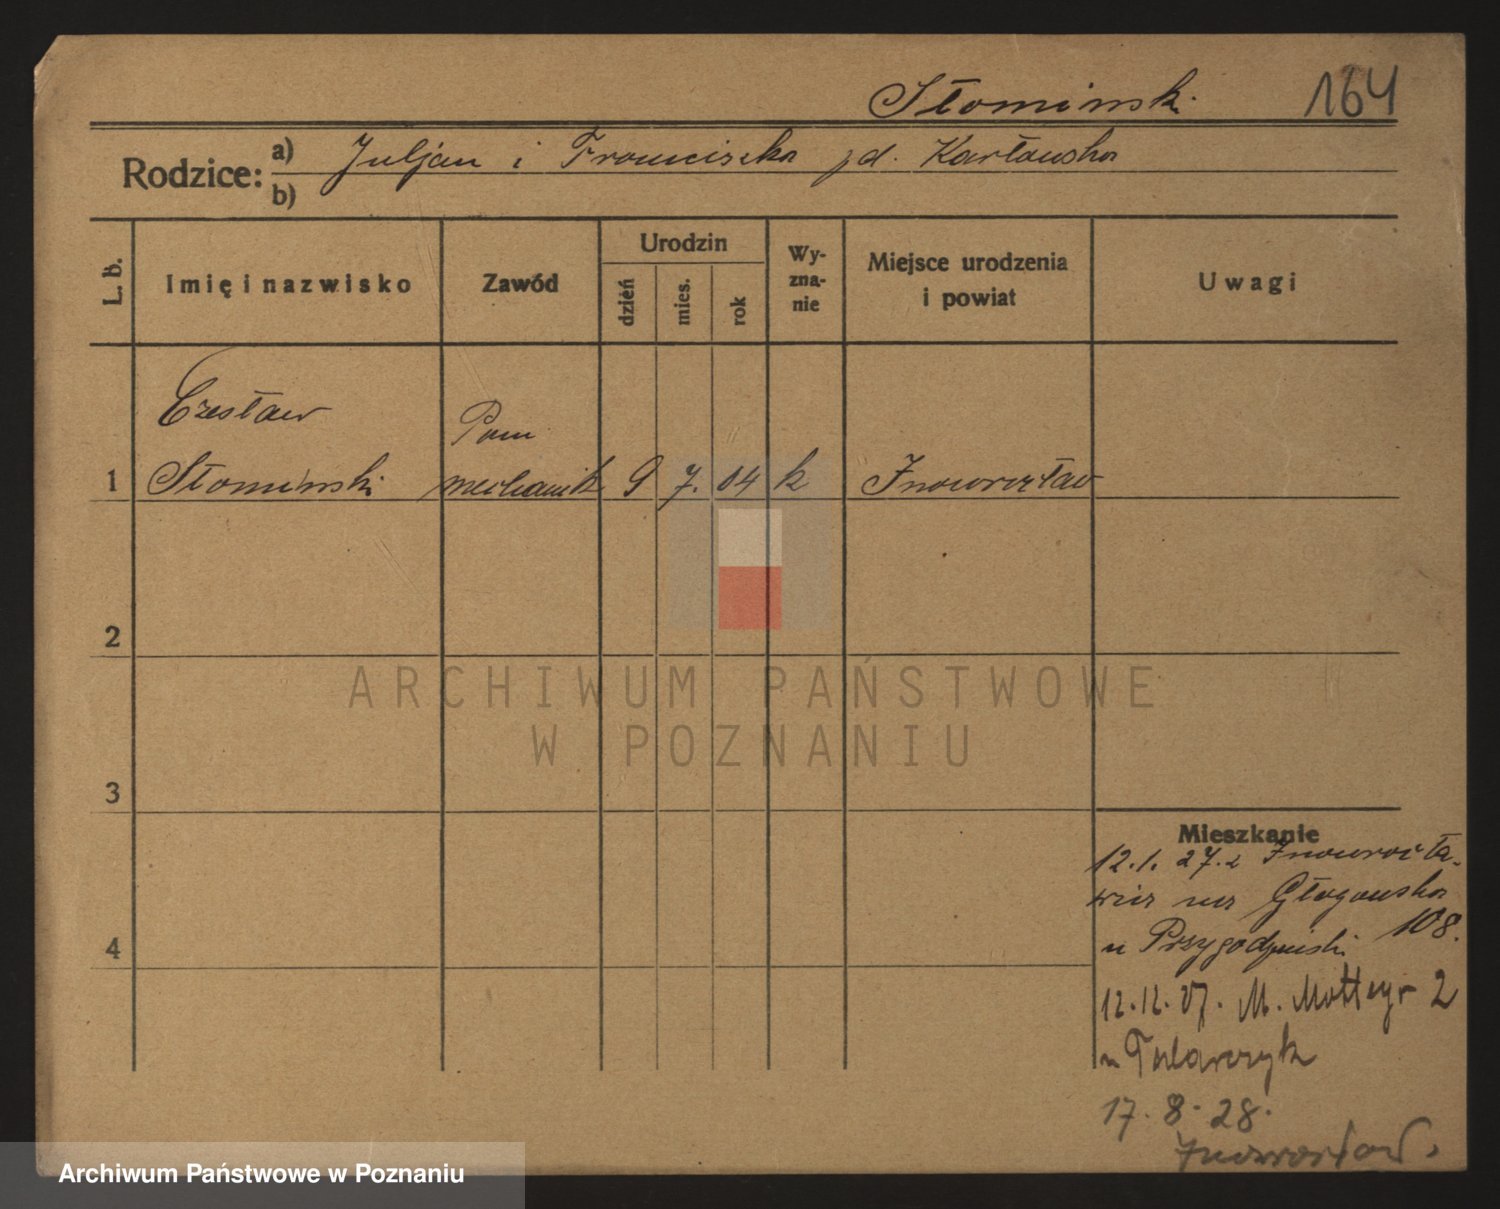 Słominski 164
Rodzice: a) Juljan i Franciszka zd. Karłowska
b)
L. b.
Imię i nazwisko
Zawód
Urodzin
dzień
mies.
rok
Wy-
zna-
nie
Miejsce urodzenia
i powiat
Uwagi
Czesław
Pom
1 Słominski mechanik 9 7. 04 k Inowrocław
2
ARCHIWUM PAŃSTWOWE
W POZNANIU
3
Mieszkanie
12.1.27. z Inowrocła-
wia na Głogowska
u Przygodzinski 108.
12.12.27. M. Mottego 2
u Talarczyk
4
17.8.28.
Inowrocław.
Archiwum Państwowe w Poznaniu